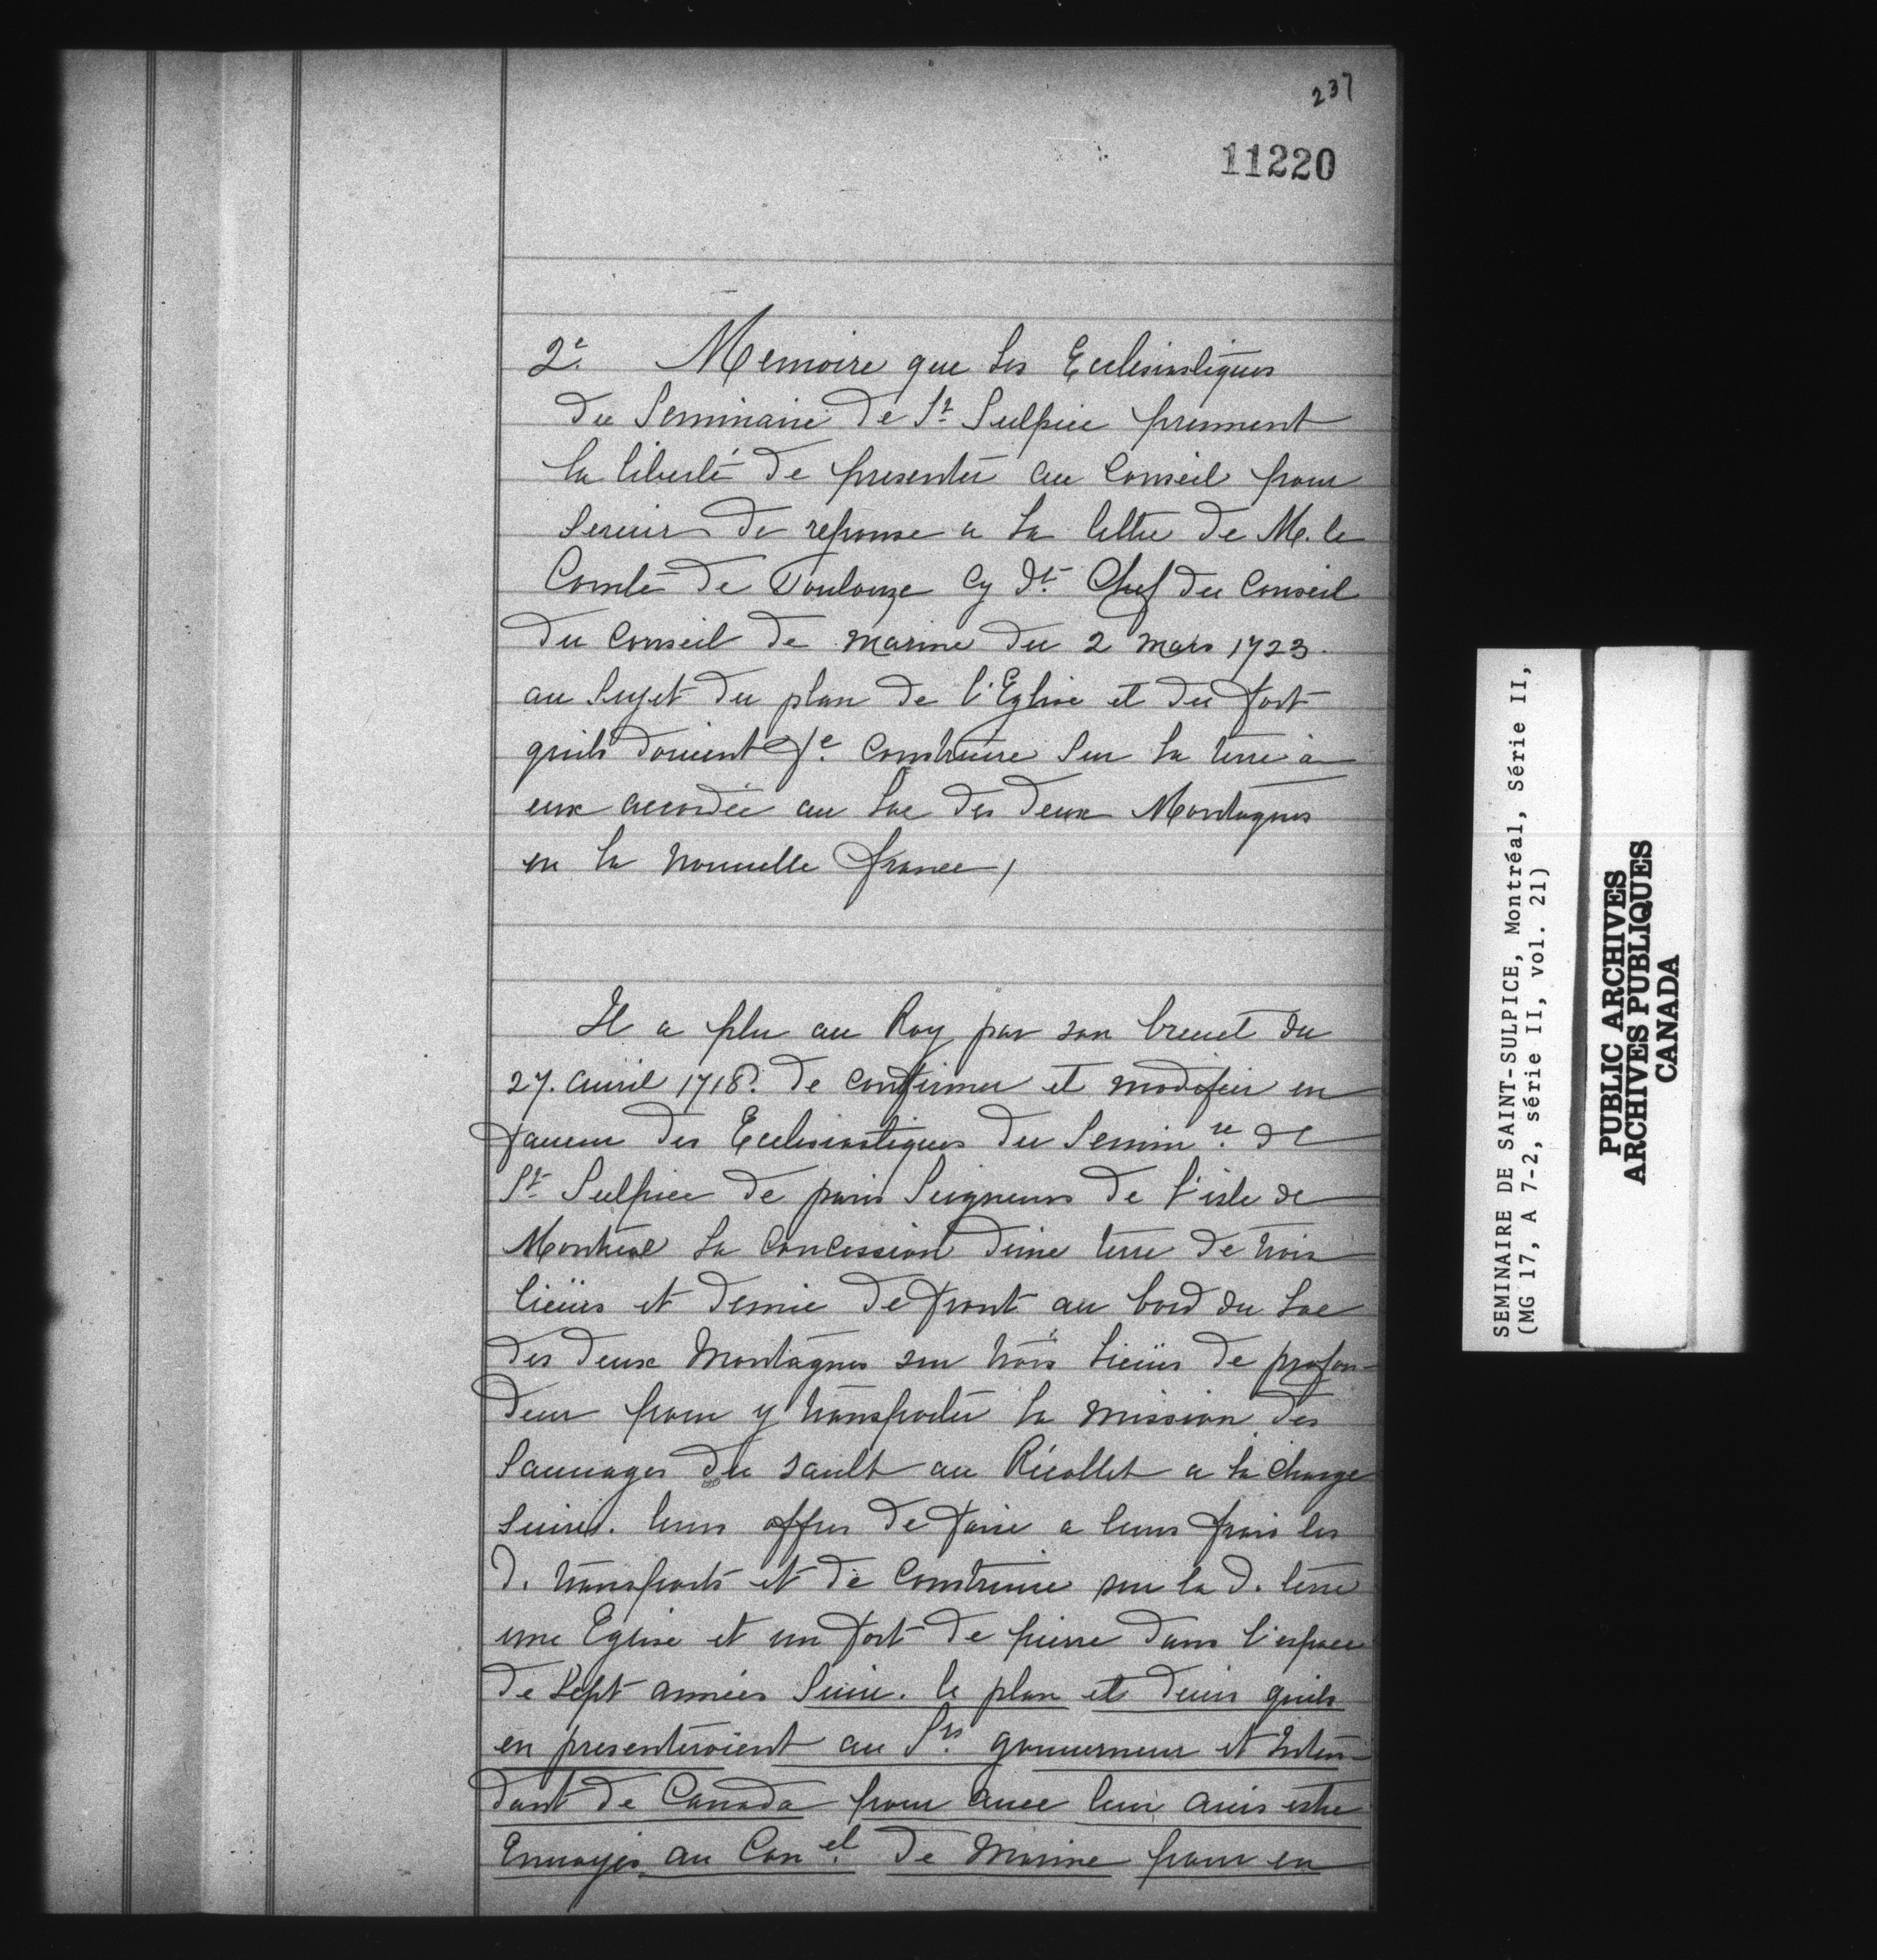 237
11220
2e. Memoire que les Ecclesiastiques
du Seminaire de St Sulpice prennent
la liberté de presenter au Conseil pour
Seruir de reponse a la lettre de M. le
Comte de Toulouze Cy dt. Chef du Conseil
du Conseil de marine du 2 mars 1723.
au Sujet du plan de l'Eglise et du fort
quils doiuent fe. Construire Sur la terre a
eux accordée au Lac des deux Montagnes
en la nouuelle france,
Il a plu au Roy par son breuet du
27. auril 1718. de confirmer et modifier en
faueur des Ecclesiastiques du Seminre. de
St Sulpice de paris Seigneurs de l'isle de
Montreal la Concession d'une terre de trois
lieües et demie de front au bord du Lac
des deux Montagnes sur trois Lieües de profon-
deur pour y transporter la mission des
Sauuages du sault au Récollet a la charge
Suiut. leurs offres de faire a leurs frais les
d. transports et de construire sur la d. terre
une Eglise et un fort de pierre dans l'espace
de Sept années Suiu. le plan et deuis quils
en presenteroient au Srs. gouuerneur et Inten-
dant de Canada pour auec leur auis estre
Enuoyés au Conel. de Marine pour en
SEMINAIRE DE SAINT-SULPICE, Montréal, Série II,
(MG 17, A 7-2, série II, vol. 21)
PUBLIC ARCHIVES
ARCHIVES PUBLIQUES
CANADA